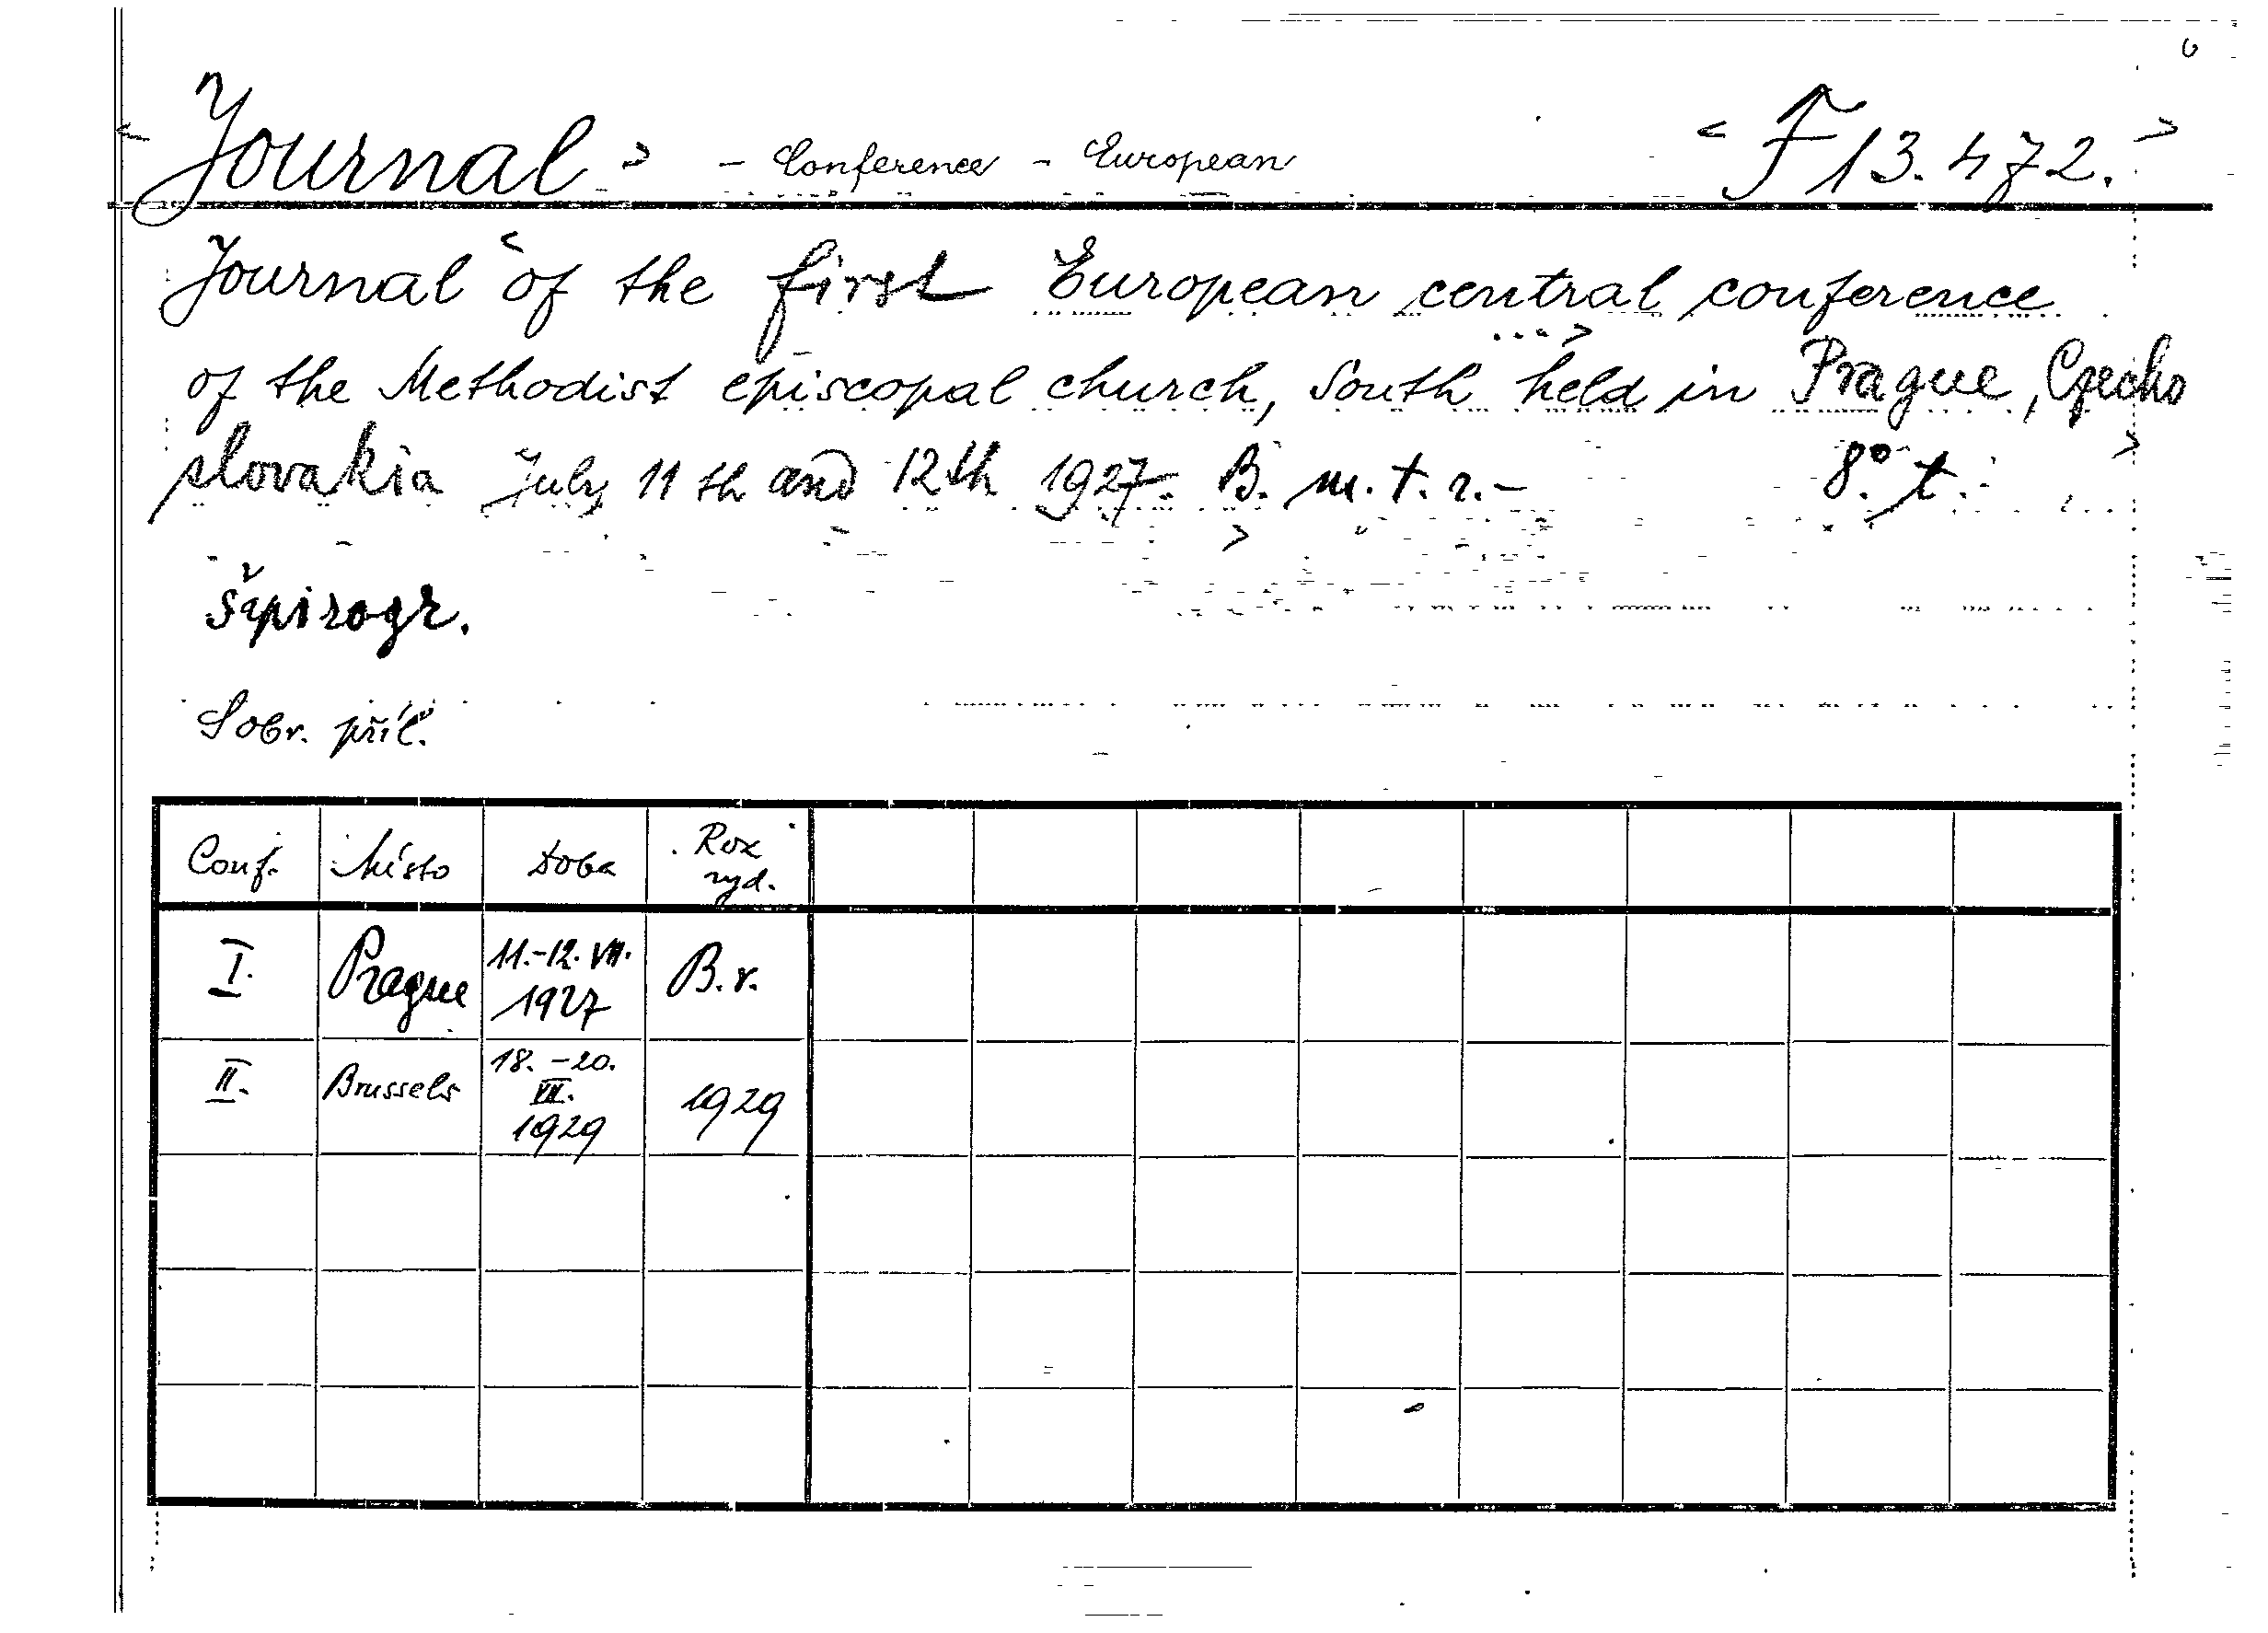 < Journal > - Conference - European < F 13.472. >
Journal < of the first European central conference
of the Methodist episcopal church, South ...> held in Prague, Czecho
slovakia July 11 th and 12th 1927. B. m. t. r.- 8° t. >
Šapirogr.
Sobr. příl.
Conf. Místo Doba Rok vyd.
I. Prague 11.-12. VII. 1927 B.r.
II. Brussels 18.-20. VII. 1929 1929